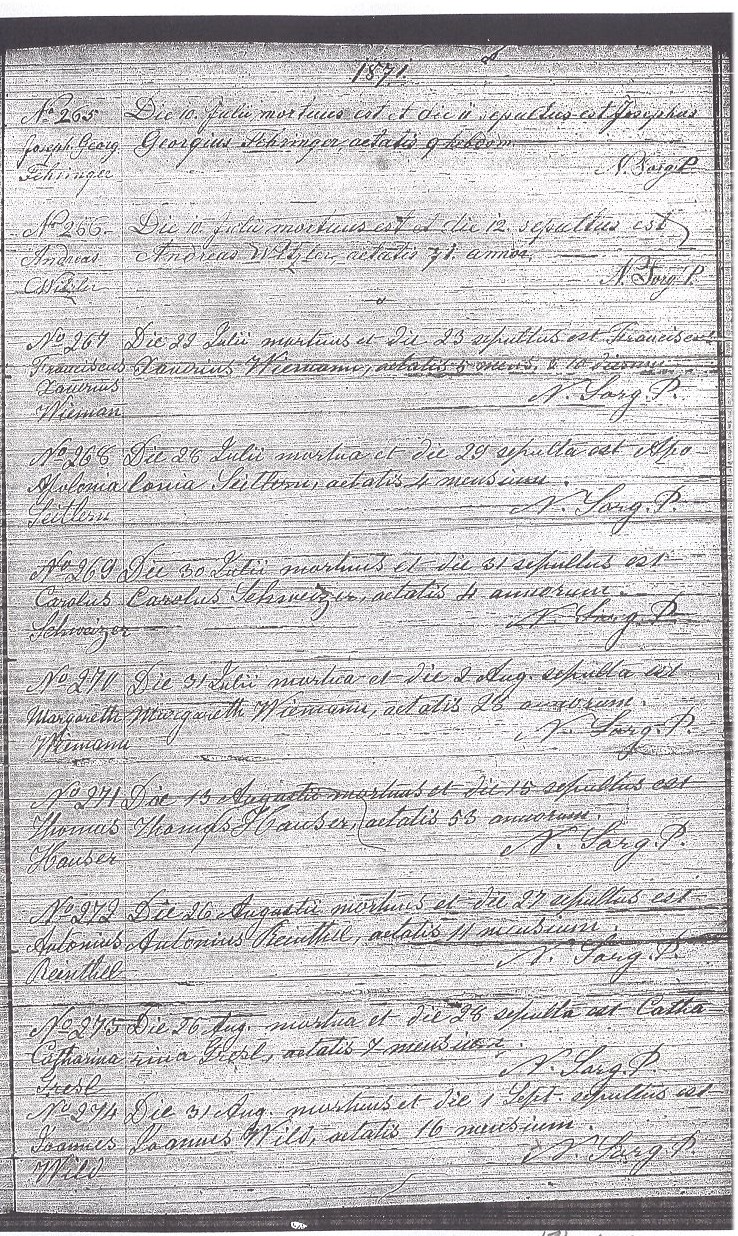 1871.
No 265 Die 10. Julii mortuus est et die 11 sepultus est Josephus
Joseph Georg Georgius Fehringer, aetatis 9 hebdom.
Fehringer N. Sorg P.
No 266. Die 10. Julii mortuus est et die 12. sepultus est
Andreas Andreas Witzler, aetatis 71. annor.
Witzler N. Sorg P.
No 267 Die 22 Julii mortuus et die 23 sepultus est Franciscus
Franciscus Xaverius Wiemann, aetatis 5 mens. & 10 dierum
Xaverius N. Sorg. P.
Wieman
No 268 Die 28 Julii mortua et die 29 sepulta est Apo-
Apolonia lonia Seittern, aetatis 4 mensium.
Seittern N. Sorg. P.
No 269 Die 30 Julii mortuus et die 31 sepultus est
Carolus Carolus Schweizer, aetatis 4 annorum.
Schweizer N. Sorg P.
No 270 Die 31 Julii mortua et die 2 Aug. sepulta est
Margareth Margareth Wiemann, aetatis 28 annorum.
Wiemann N. Sorg. P.
No 271 Die 13 Augusti mortuus et die 15 sepultus est
Thomas Thomas Hauser, aetatis 53 annorum.
Hauser N. Sorg. P.
No 272 Die 26 Augustii mortuus et die 27 sepultus est
Antonius Antonius Reinthel, aetatis 11 mensium.
Reinthel N. Sorg. P.
No 273 Die 26 Aug. mortua et die 28 sepulta est Catha-
Catharina rina Gresl, aetatis 7 mensium.
Gresl N. Sorg P.
No 274 Die 31 Aug. mortuus et die 1 Sept. sepultus est
Joannes Joannes Wild, aetatis 16 mensium.
Wild N. Sorg P.